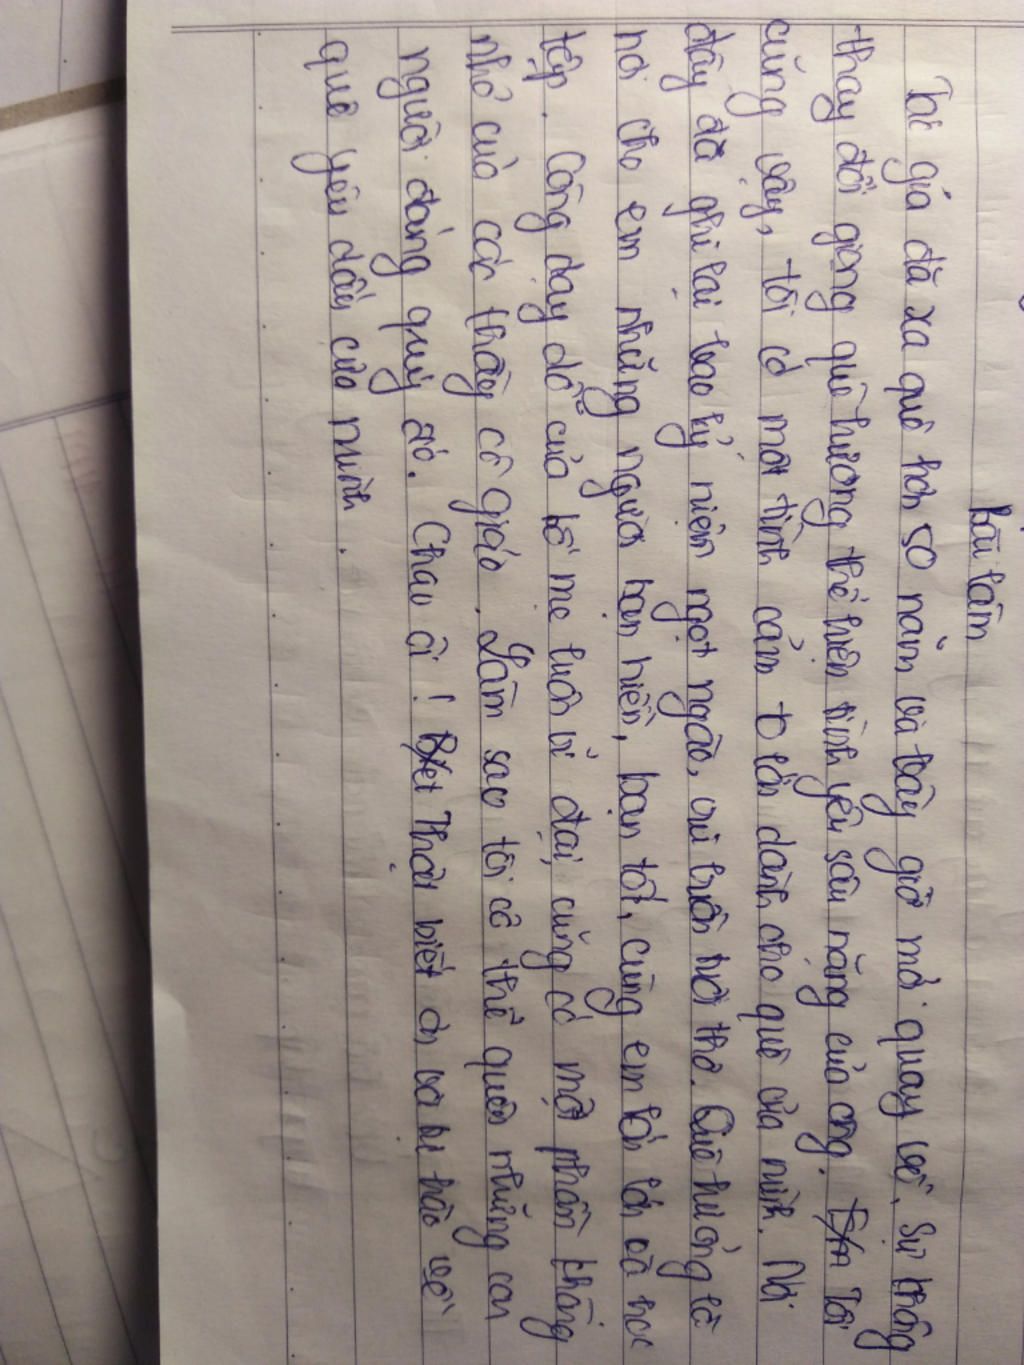 Bài làm
Tác giả đã xa quê hơn 50 năm và bây giờ mới quay về. Sự không
thay đổi giọng quê hương thể hiện tình yêu sâu nặng của ông. Tôi
cũng vậy, tôi có một tình cảm to lớn dành cho quê của mình. Nơi
đây đã ghi lại bao kỷ niệm ngọt ngào, vui buồn tuổi thơ. Quê hương là
nơi cho em những người bạn hiền, bạn tốt, cùng em lớn lên và học
tập. Công dạy dỗ của bố mẹ luôn vĩ đại, cũng có một phần không
nhỏ của các thầy cô giáo. Làm sao tôi có thể quên những con
người đáng quý đó. Chao ôi! Thật biết ơn và tự hào về
quê yêu dấu của mình.